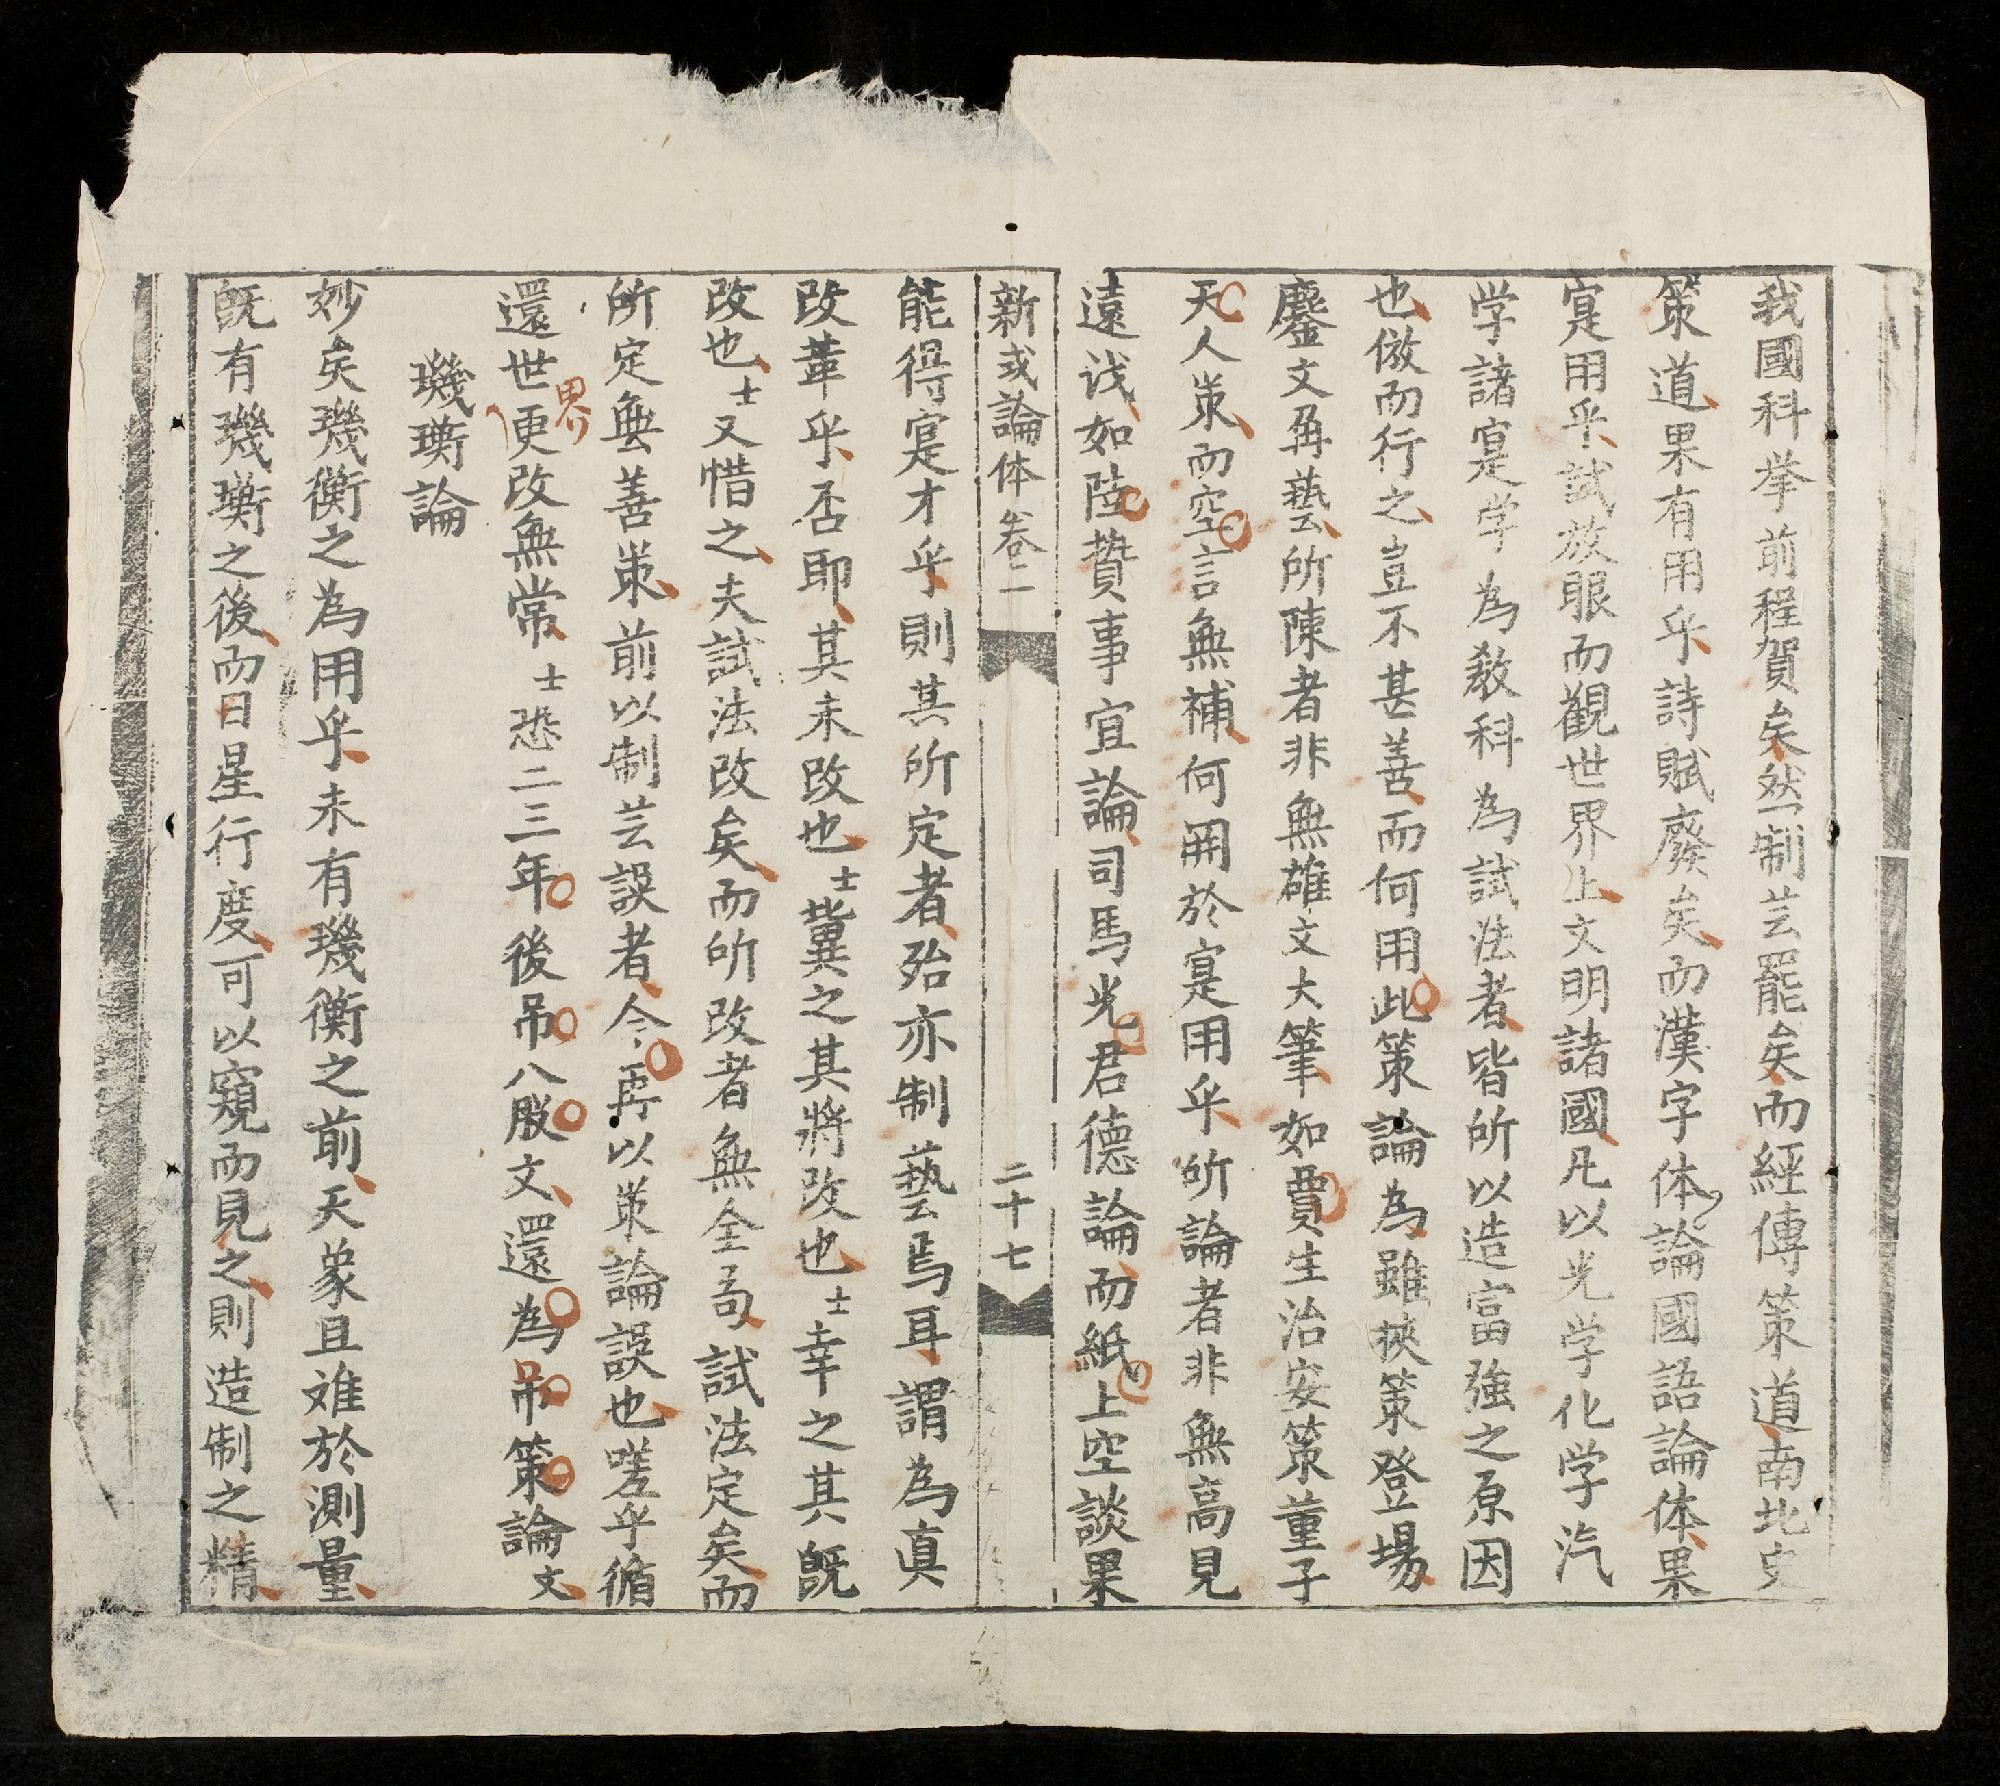 我國科挙前程賀矣然制芸罷矣而經傳策道南北史
策道果有用乎詩賦廢矣而漢字体論國語論体果
寔用乎試放眼而觀世界上文明諸國凡以光学化学汽
学諸寔学為教科為試法者皆所以造富強之原因
也倣而行之豈不甚善而何用此策論為雖挾策登場
鏖文角藝所陳者非無雄文大筆如賈生治安策董子
天人策而空言無補何用於寔用乎所論者非無高見
遠識如陸贄事宜論司馬光君德論而紙上空談果
新式論体卷二 二十七
能得寔才乎則其所定者殆亦制藝焉耳謂為真
改革乎否耶其未改也士冀之其將改也士幸之其既
改也士又惜之夫試法改矣而所改者無全局試法定矣而
所定無善策前以制芸誤者今再以策論誤也嗟乎循
還世界更改無常士恐二三年後吊八股文還為吊策論文
璣璣論
妙矣璣衡之為用乎未有璣衡之前天象且难於測量
既有璣衡之後而日星行度可以窺而見之則造制之精